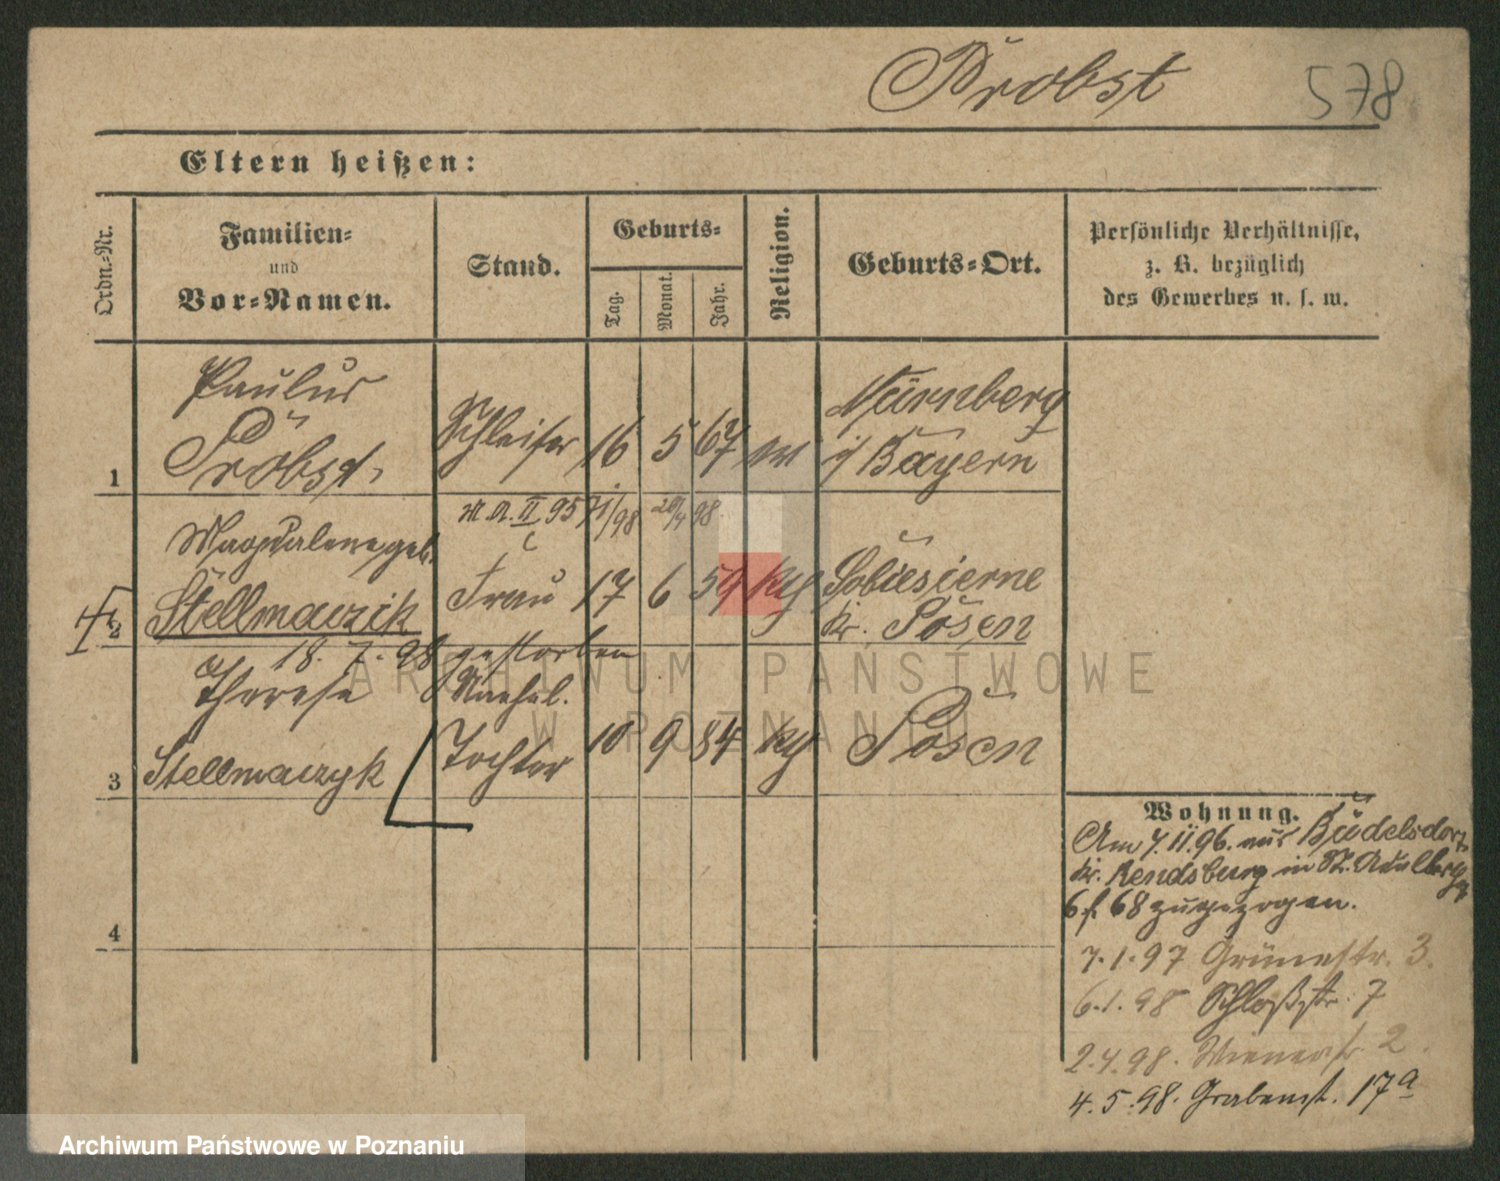 Probst
578
Eltern heißen:
Ordn.-Nr.
Familien-
und
Vor-Namen.
Stand.
Geburts-
Tag.
Monat.
Jahr.
Religion.
Geburts-Ort.
Persönliche Verhältnisse,
z. B. bezüglich
des Gewerbes u. s. w.
1
Paulus
Probst,
Schleifer
16
5
67
Nürnberg
i/ Bayern
II 95
71/98
20/4 98
Magdalene geb.
Stellmaczik
Frau
17
6
59
kth
Sobiesierne
Kr. Posen
18. 7. 98 gestorben
3
Therese
Stellmaczyk
Tochter
10
9
84
kth
Posen
4
Wohnung.
Am 7.11.96. aus Büdelsdorf,
Kr. Rendsburg in St. Adalberg
68 zugezogen.
7.1.97 Grünestr. 3.
6.1.98 Schloßstr. 7
2.4.98. Wienerstr. 2.
4.5.98. Grabenst. 17a
ARCHIWUM PAŃSTWOWE
W POZNANIU
Archiwum Państwowe w Poznaniu